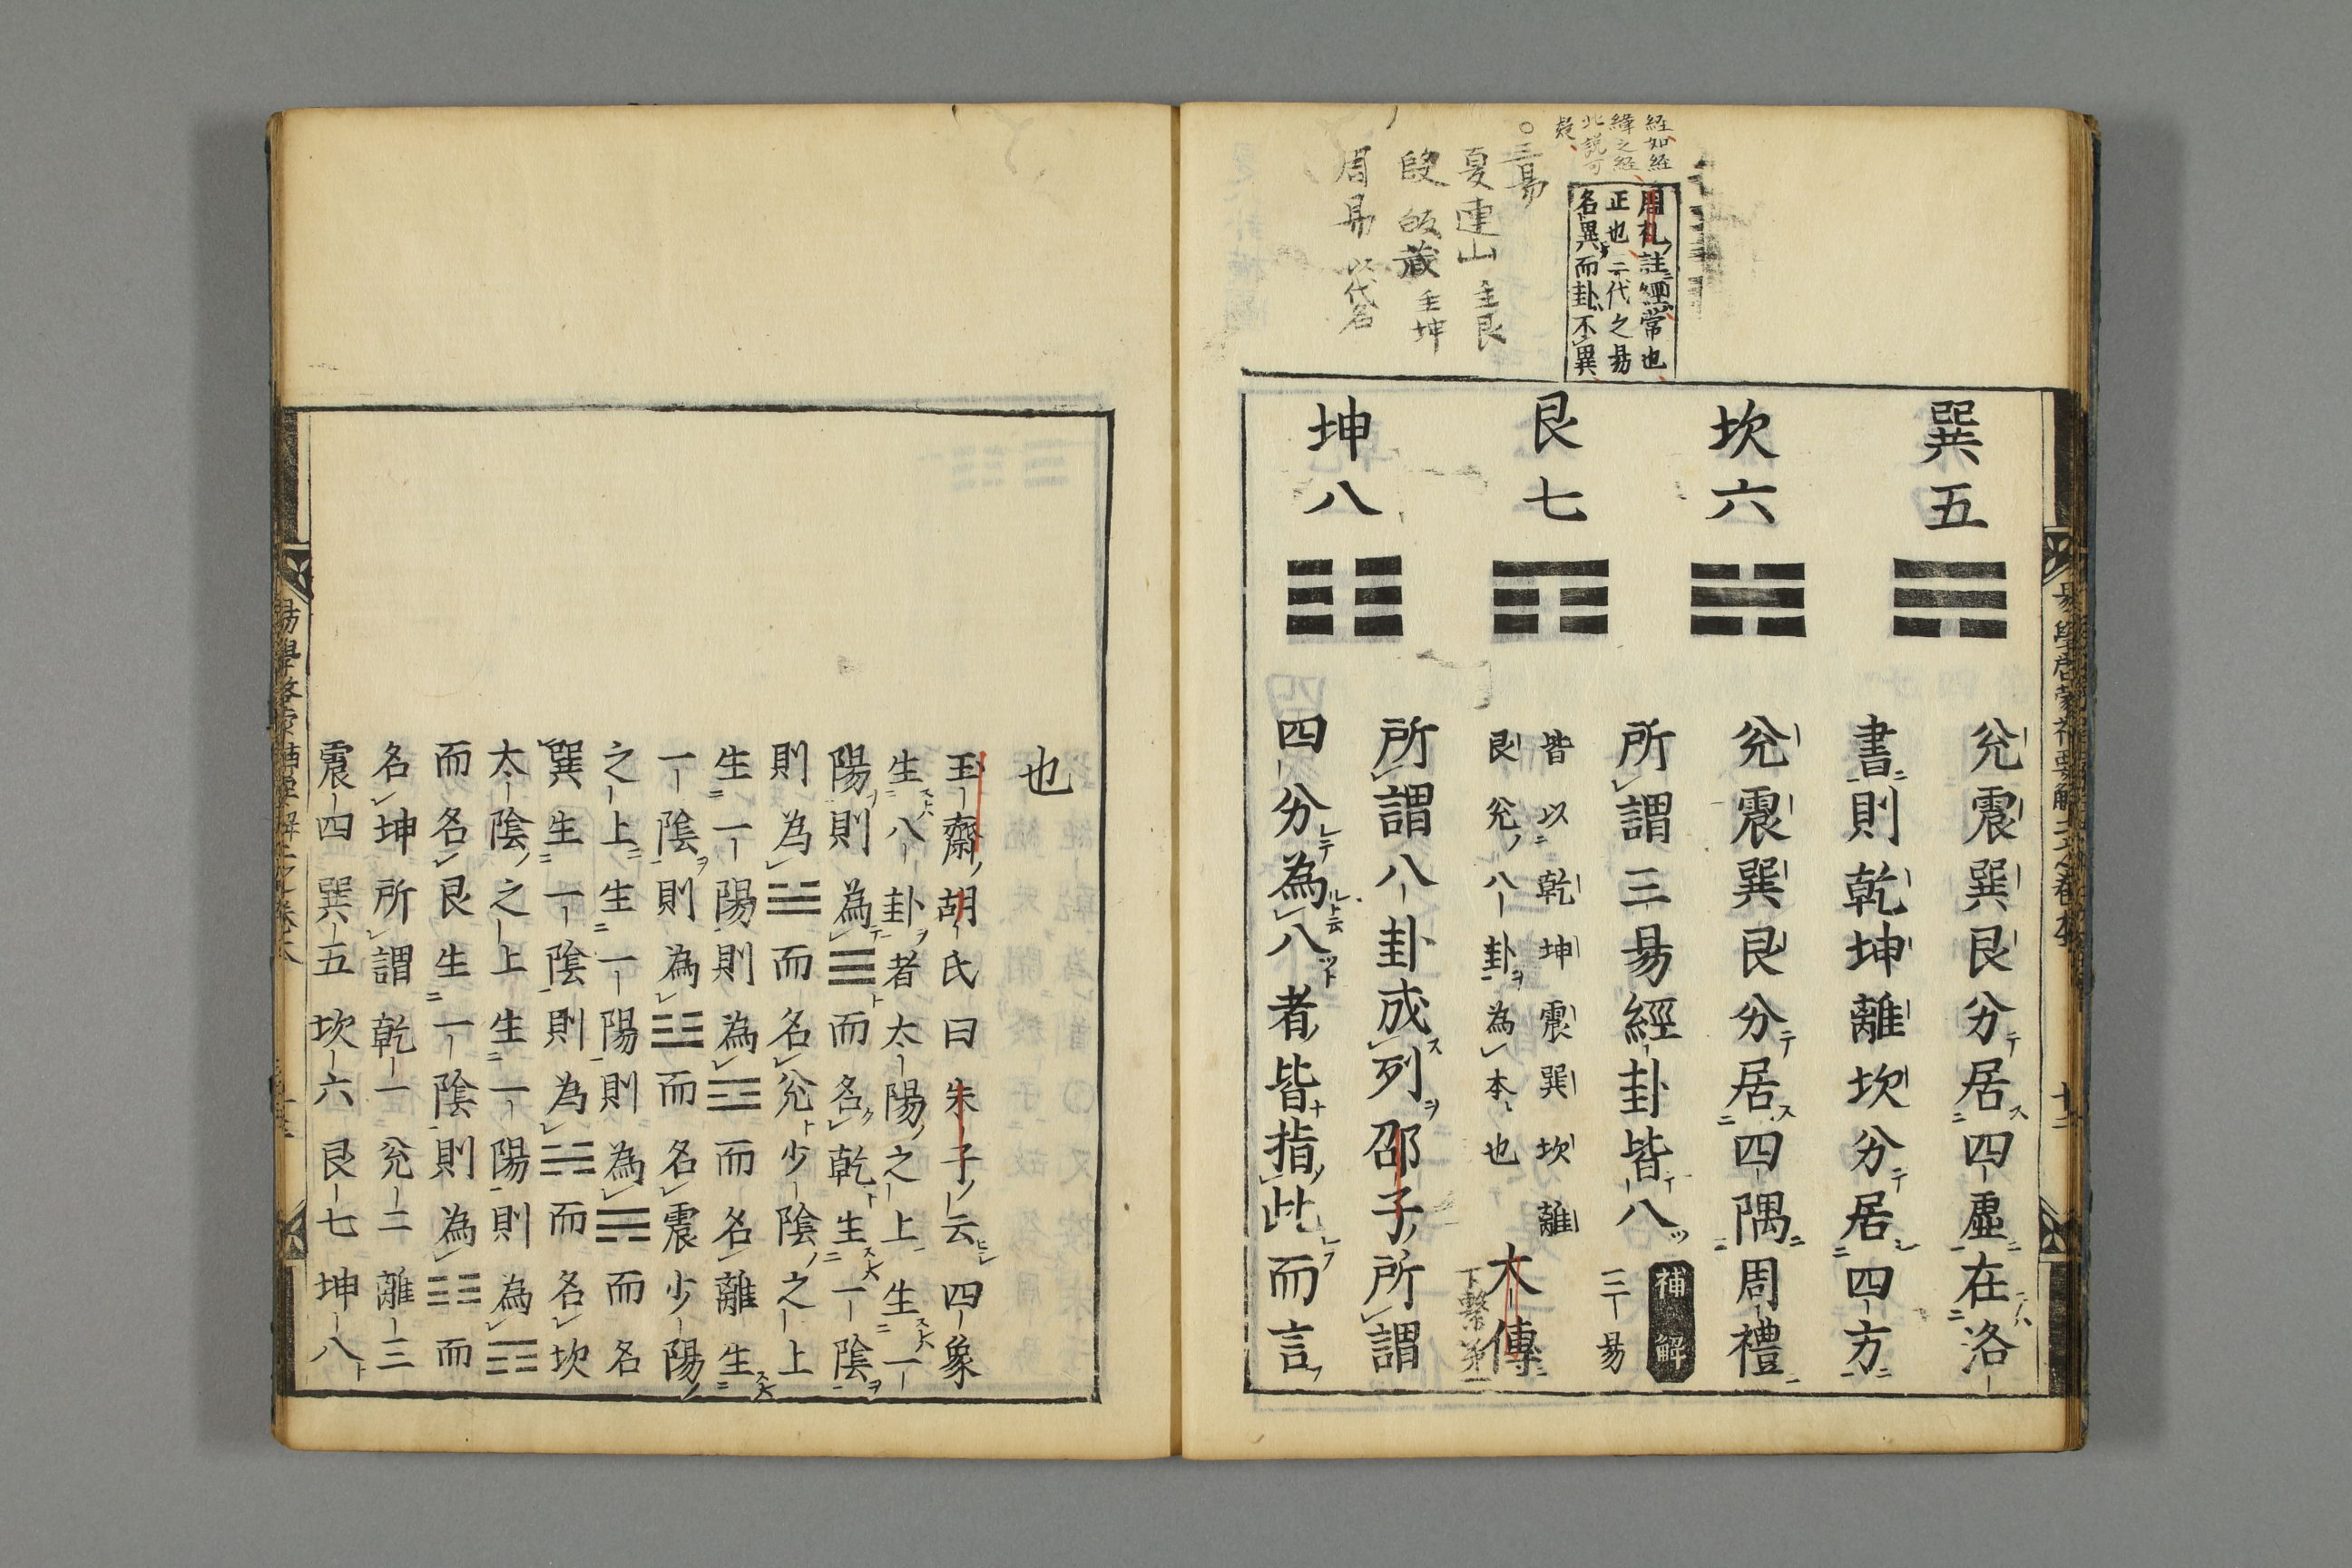 巽五
坎六
艮七
坤八
兊震巽艮分居四虛在洛
書則乾坤離坎分居四方
兊震巽艮分居四隅周禮
所謂三易經卦皆八 補解 三易
皆以乾坤震巽坎離
艮兊八卦為本也 大傳
下繫第一
所謂八卦成列邵子所謂
四分為八者皆指此而言
経如経
緯之経
此説可
疑
周礼註經常也
正也二代之易
名異而卦不異
○三易
夏連山 主艮
殷皈蔵 主坤
周易 以代名
也
玉齋胡氏曰朱子云四象
生八卦者太陽之上生一
陽則為☰而名乾生一陰
則為☱而名兊少陰之上
生一陽則為☲而名離生
一陰則為☳而名震少陽
之上生一陽則為☴而名
巽生一陰則為☵而名坎
太陰之上生一陽則為☶
而名艮生一陰則為☷而
名坤所謂乾一兊二離三
震四巽五坎六艮七坤八